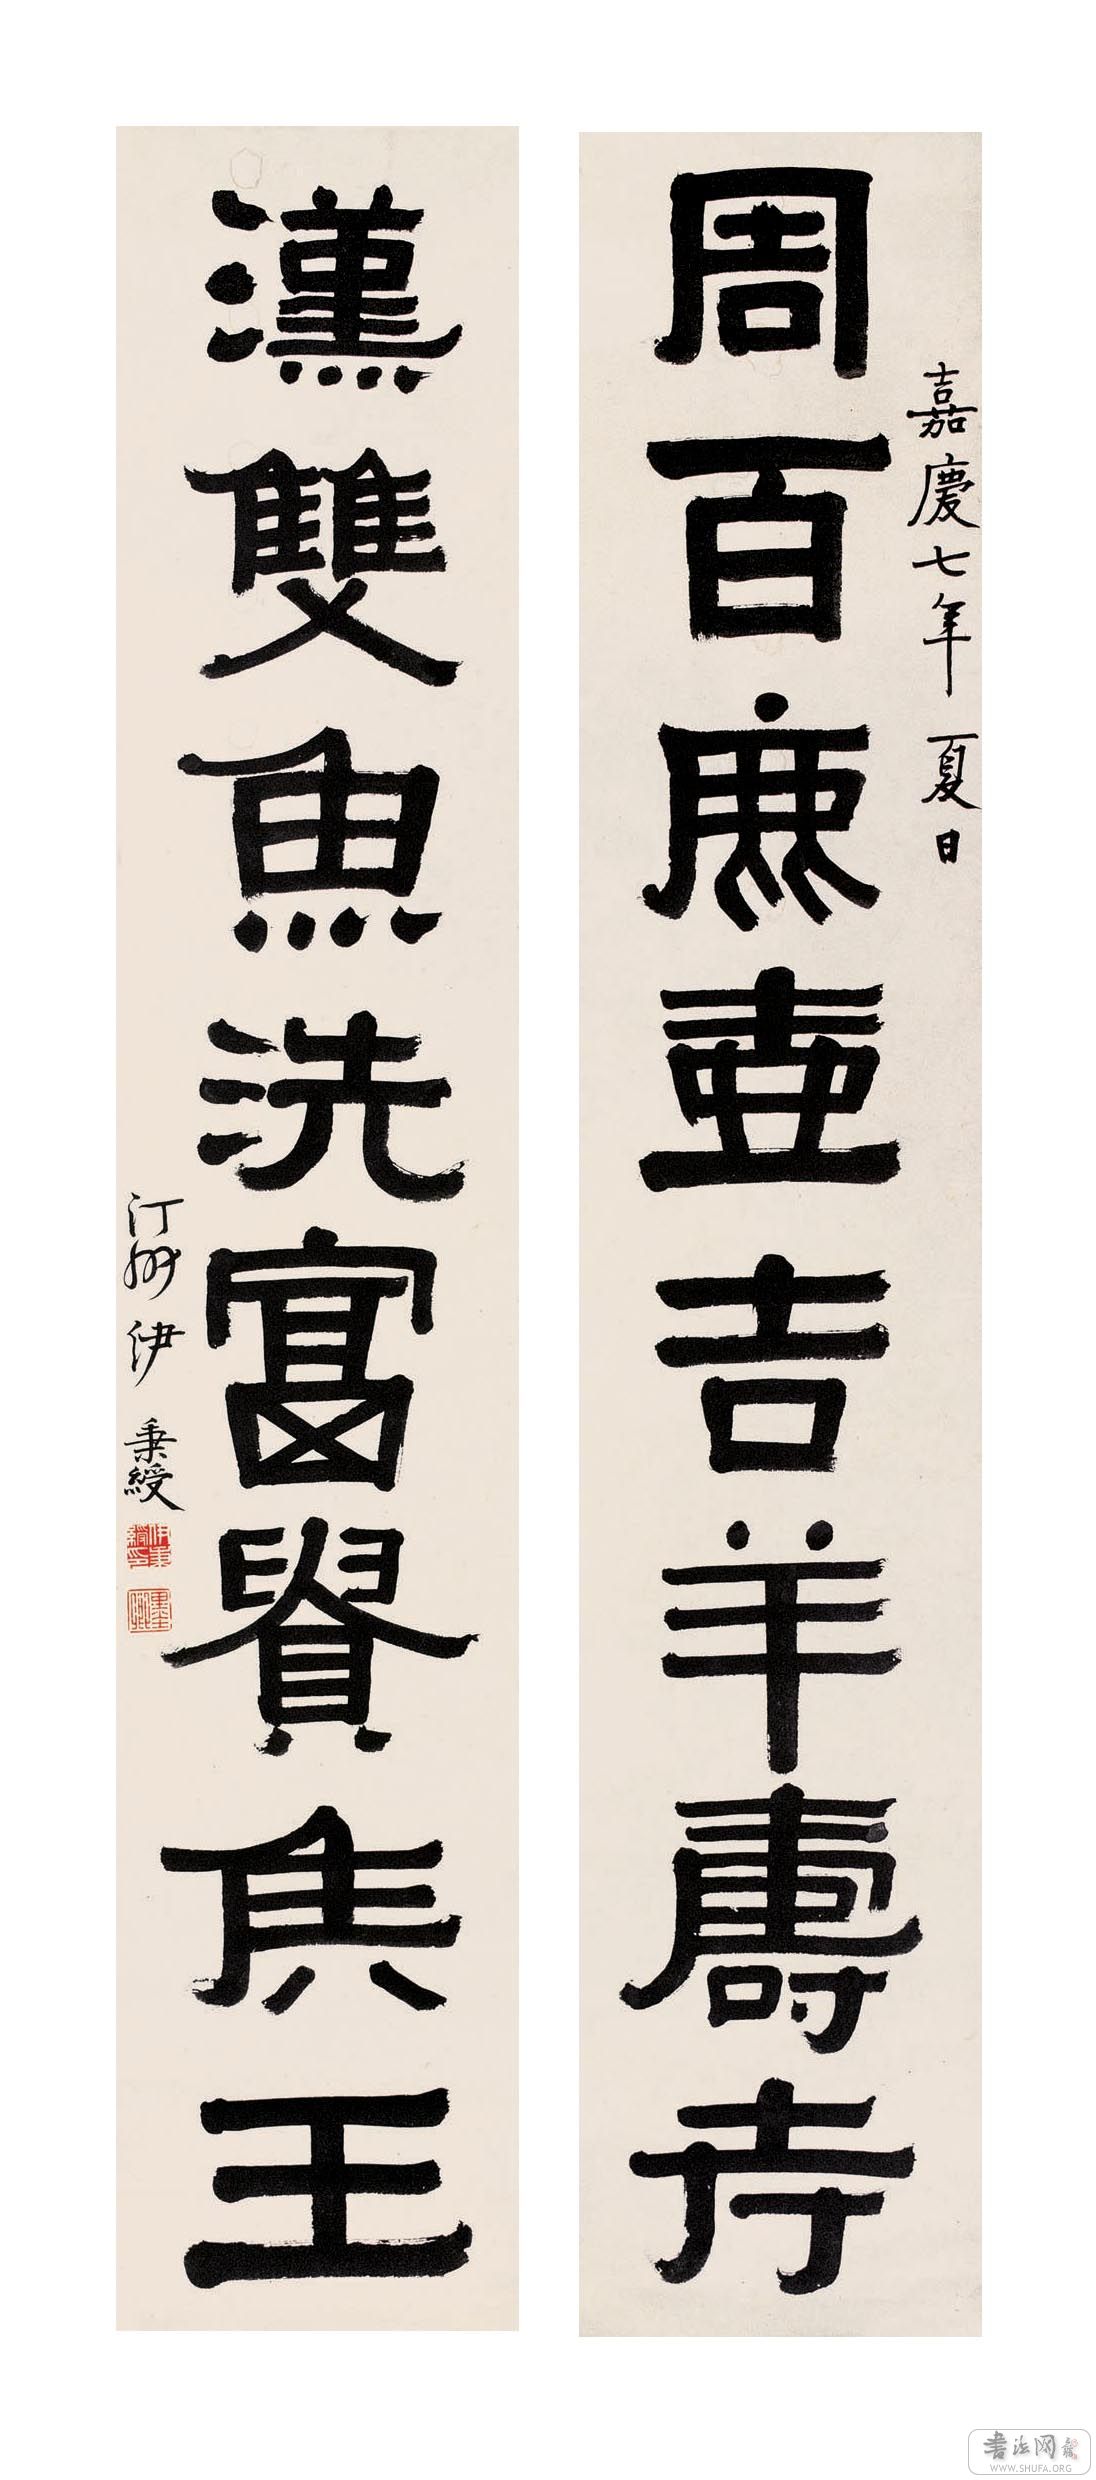 嘉慶七年夏日
周百鹿壺吉羊壽考
漢雙魚洗富貴侯王
汀州伊秉綬
伊秉綬印
书法网
WWW.SHUFA.ORG